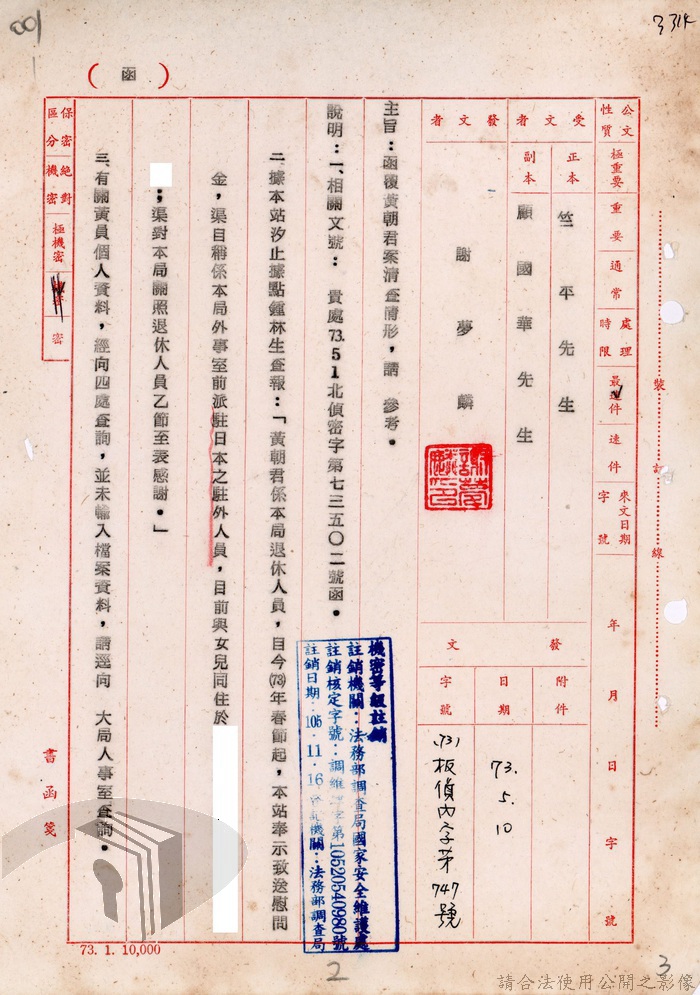 001
3314
（函）
公文性質
極重要
重要
通常
處理時限
最速件
速件
來文日期字號
年
月
日
字
號
受文者
正本
竺平先生
副本
顧國華先生
發文者
謝夢麟
發文
附件
日期
73.5.10
字號
(73)板偵內字第747號
主旨：函覆黃朝君案清查情形，請 參考。
說明：一、相關文號： 貴處73.51北偵密字第七三五〇二號函。
二、據本站汐止據點鍾林生查報：「黃朝君係本局退休人員，自今(73)年春節起，本站奉示致送慰問
金，渠自稱係本局外事室前派駐日本之駐外人員，目前與女兒同住於
；渠對本局關照退休人員乙節至衷感謝。」
三、有關黃員個人資料，經向四處查詢，並未輸入檔案資料，請逕向 大局人事室查詢。
保密區分
絕對機密
極機密
密
機密等級註銷
註銷機關：法務部調查局國家安全維護處
註銷核定字號：調維 字第10520540980號
註銷日期：105.11.16 機關：法務部調查局
裝
訂
線
書函箋
73. 1. 10,000
2
3
請合法使用公開之影像